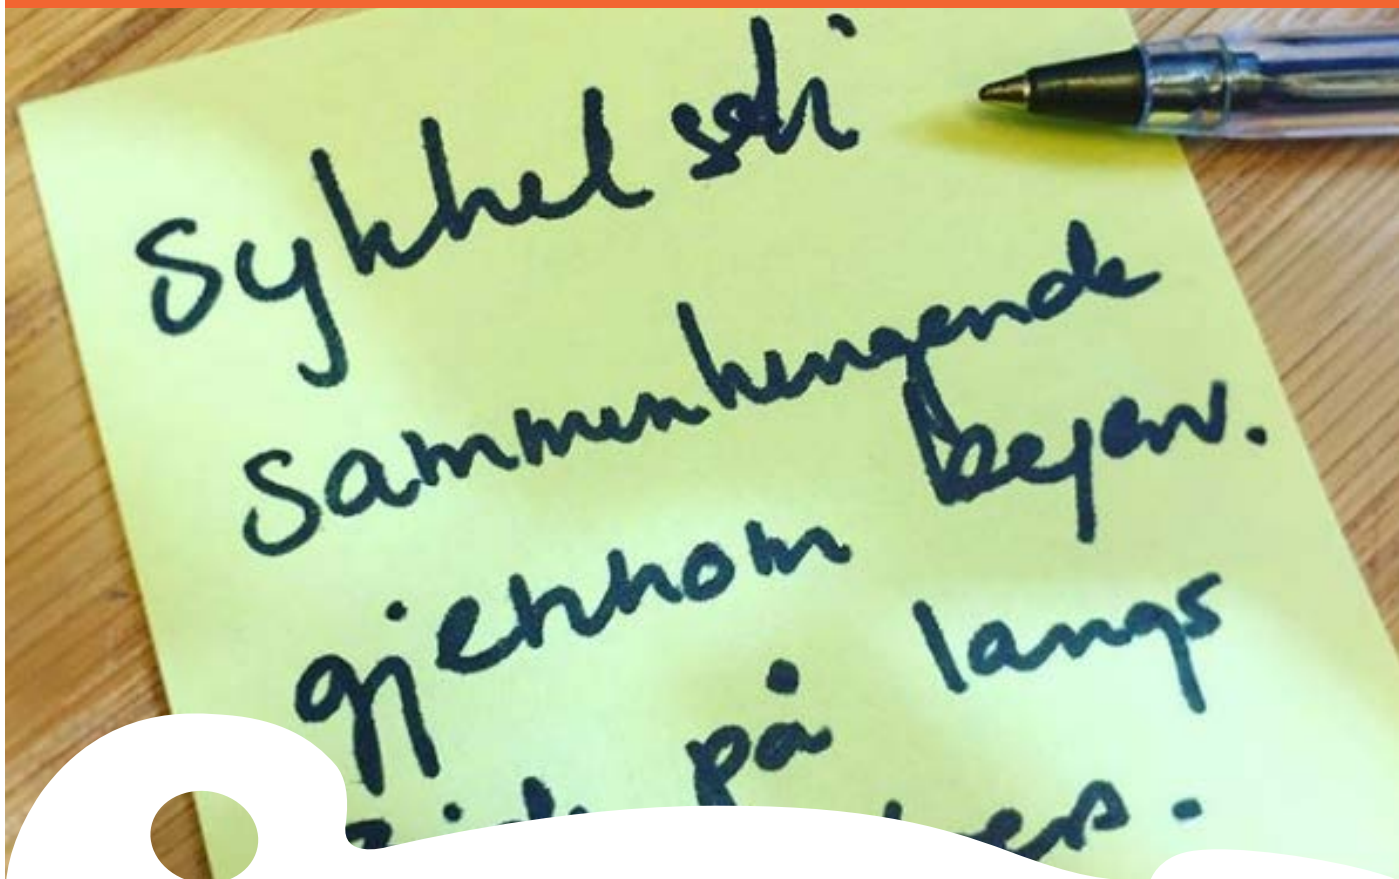 Sykkel sti
sammenhengende
gjennom
på langs